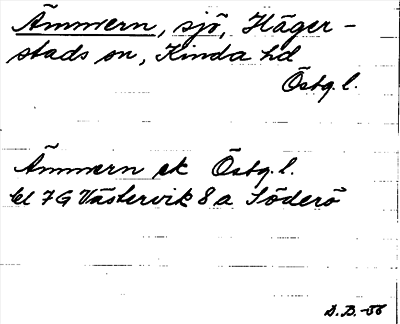 Ämmern, sjö, Häger-
stads sn, Kinda hd
Östg. l.
Ämmern ek Östg. l.
bl 7G Västervik 8a Söderö
D.B.-56